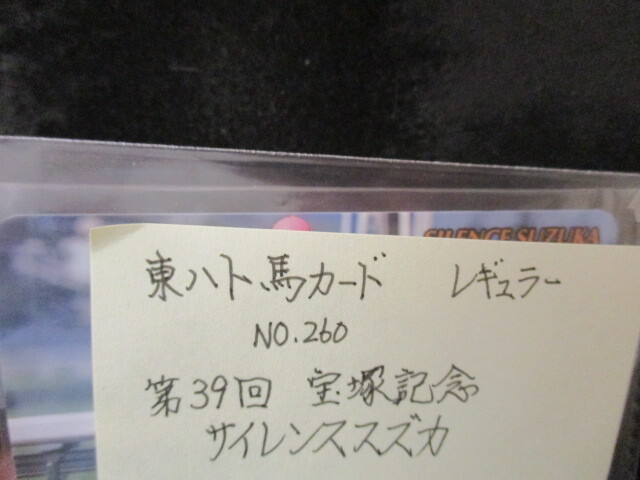 SILENCE SUZUKA
東ハト馬カード レギュラー
NO.260
第39回 宝塚記念
サイレンススズカ